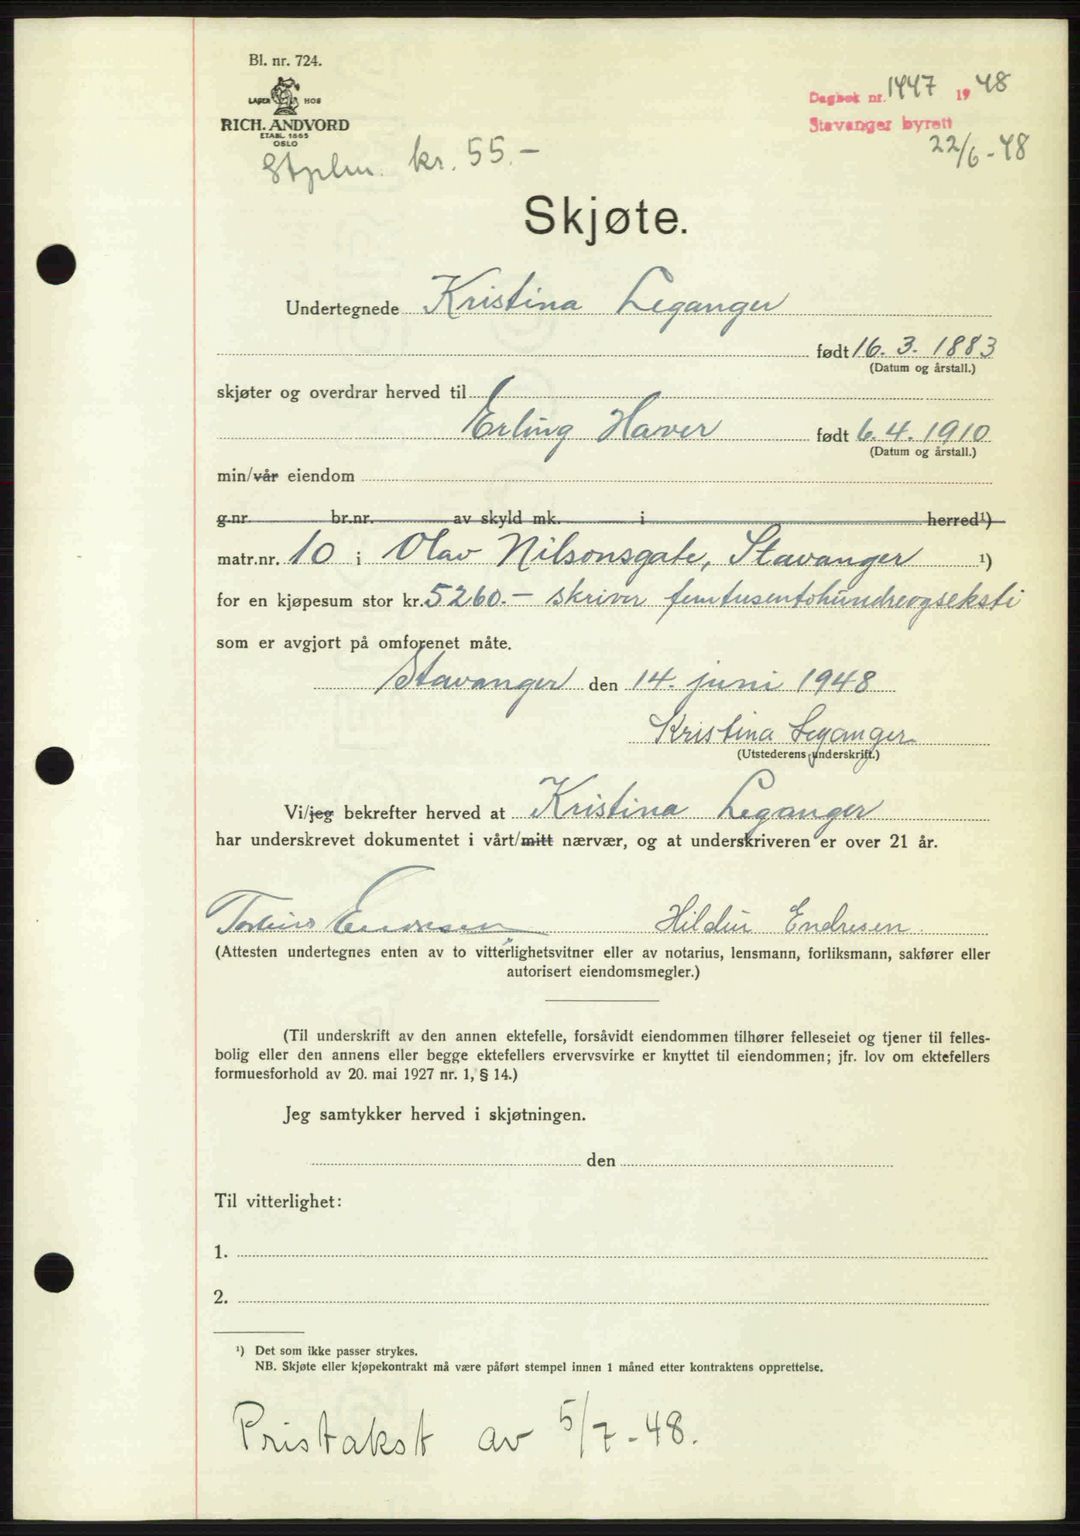 Bl. nr. 724.
LAGER HOS
RICH. ANDVORD
ETABL 1865
OSLO
Dagbok nr. 1447 1948
Stavanger byrett
22/6-48
Stplm. kr. 55.-
Skjøte.
Undertegnede Kristina Leganger
født 16. 3. 1883
(Datum og årstall.)
skjøter og overdrar herved til
Erling Haver født 6.4.1910
(Datum og årstall.)
min/vår eiendom
g-nr. br.nr. av skyld mk. i herred¹)
matr.nr. 10 i Olav Nilsonsgate, Stavanger ¹)
for en kjøpesum stor kr. 5260.- skriver femtusentohundreogseksti
som er avgjort på omforenet måte.
Stavanger den 14. juni 1948
Kristina Leganger
(Utstederens underskrift.)
Vi/jeg bekrefter herved at Kristina Leganger
har underskrevet dokumentet i vårt/mitt nærvær, og at underskriveren er over 21 år.
Endresen Hildur Endresen
(Attesten undertegnes enten av to vitterlighetsvitner eller av notarius, lensmann, forliksmann, sakfører eller
autorisert eiendomsmegler.)
(Til underskrift av den annen ektefelle, forsåvidt eiendommen tilhører felleseiet og tjener til felles-
bolig eller den annens eller begge ektefellers ervervsvirke er knyttet til eiendommen; jfr. lov om ektefellers
formuesforhold av 20. mai 1927 nr. 1, § 14.)
Jeg samtykker herved i skjøtningen.
den
Til vitterlighet:
1.
2.
¹) Det som ikke passer strykes.
NB. Skjøte eller kjøpekontrakt må være påført stempel innen 1 måned etter kontraktens opprettelse.
Pristakst av 5/7-48.